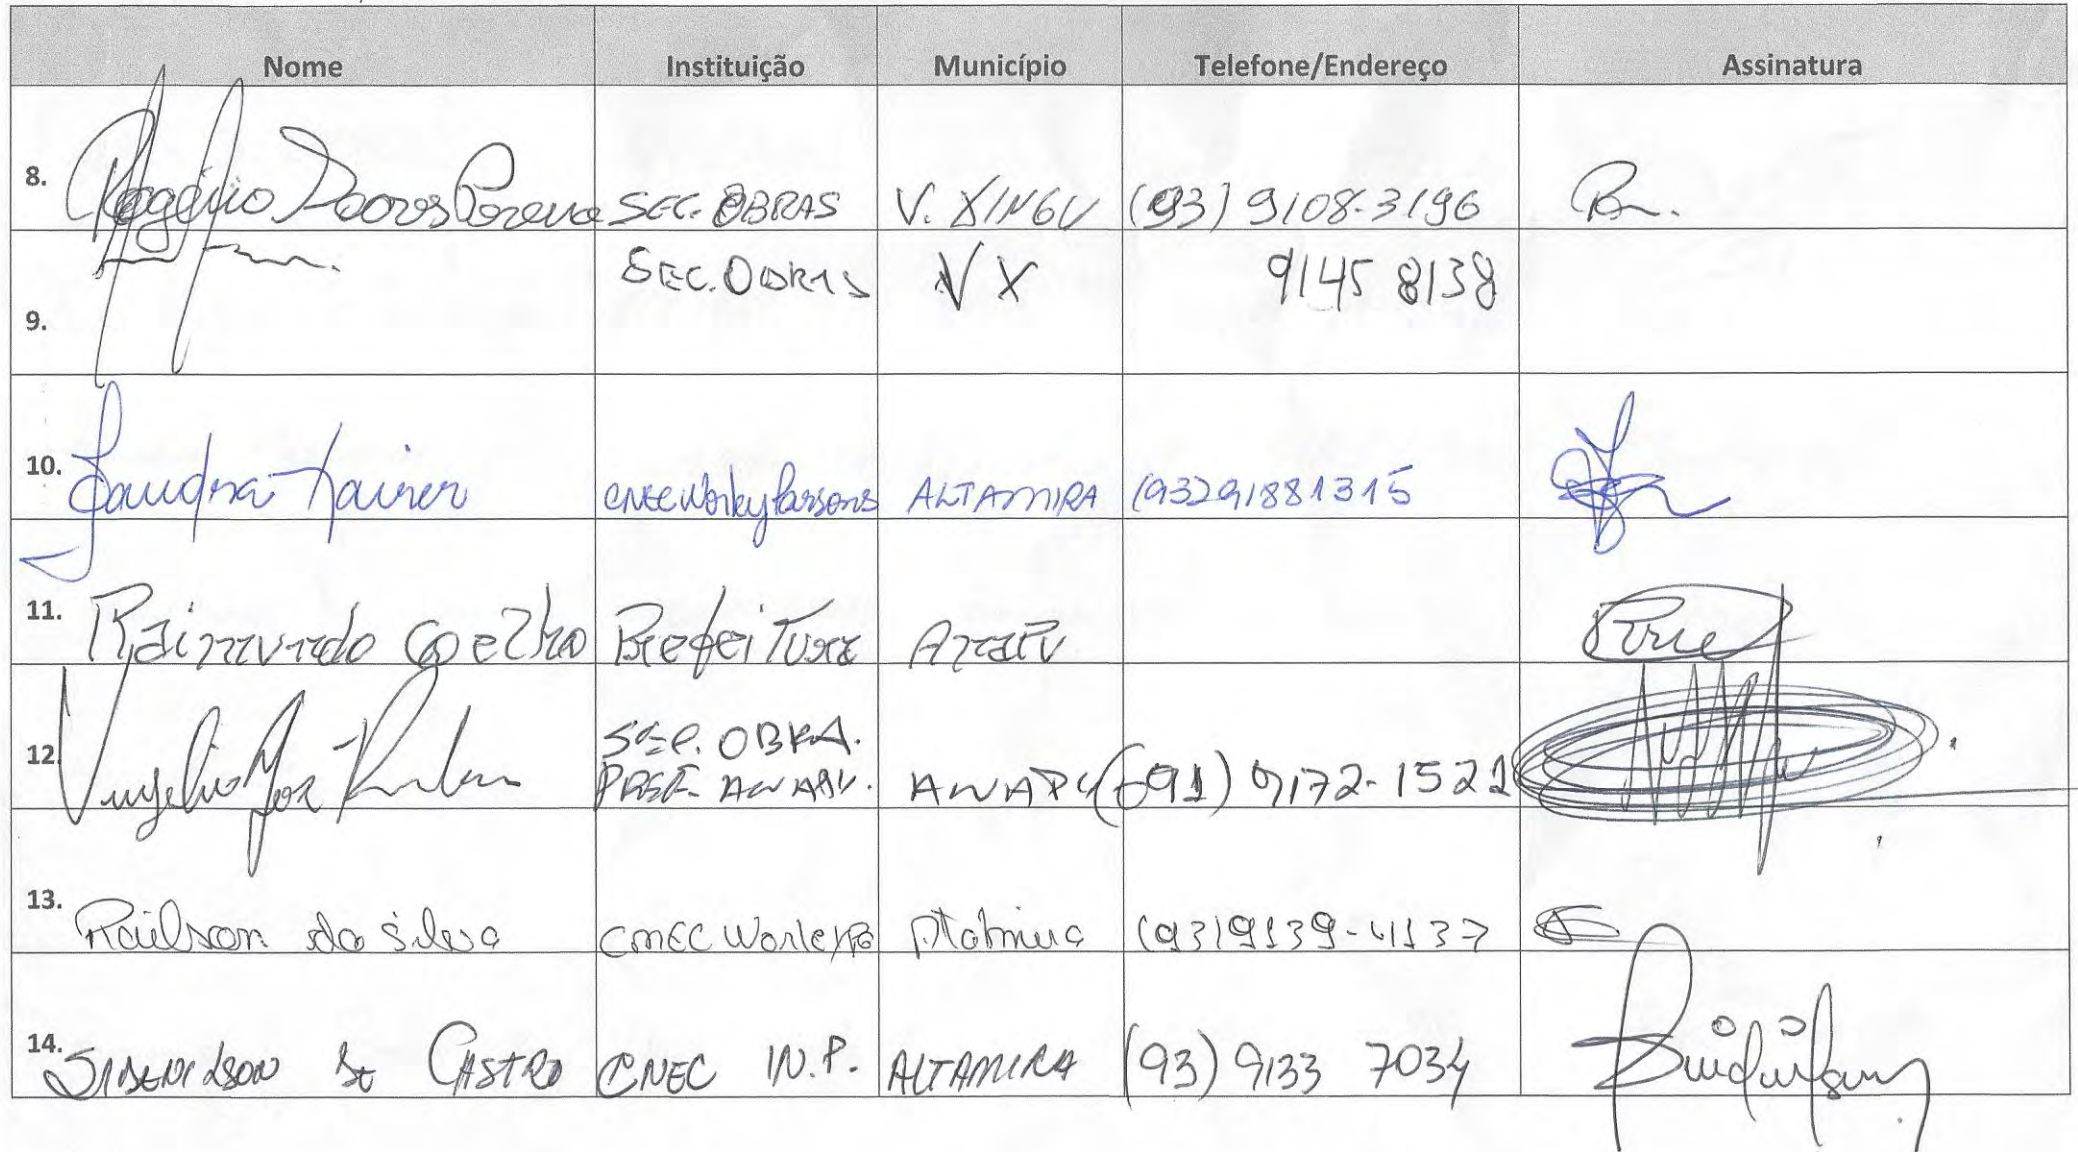 Nome Instituição Município Telefone/Endereço Assinatura
8. Rogério SEC. OBRAS V. XINGU (93) 9108-3196
9. SEC. OBRAS VX 9145 8138
10. Sandra Xavier CNEC Worley Parsons ALTAMIRA (93) 91881315
11. Raimundo Coelho Prefeitura Anapu
SEC. OBRA.
12. PREF. ANAPU. ANAPU (91) 9172-1521
13. Railson da Silva CNEC Worley Altamira (93) 9139-4137
14. DE CASTRO CNEC W.P. ALTAMIRA (93) 9133 7034